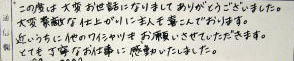 この度は大変お世話になりましてありがとうございました。
大変素敵な仕上がりに主人も喜んでおります。
近いうちに他のワイシャツもお願いさせていただきます。
とても丁寧なお仕事に感動いたしました。
通信欄